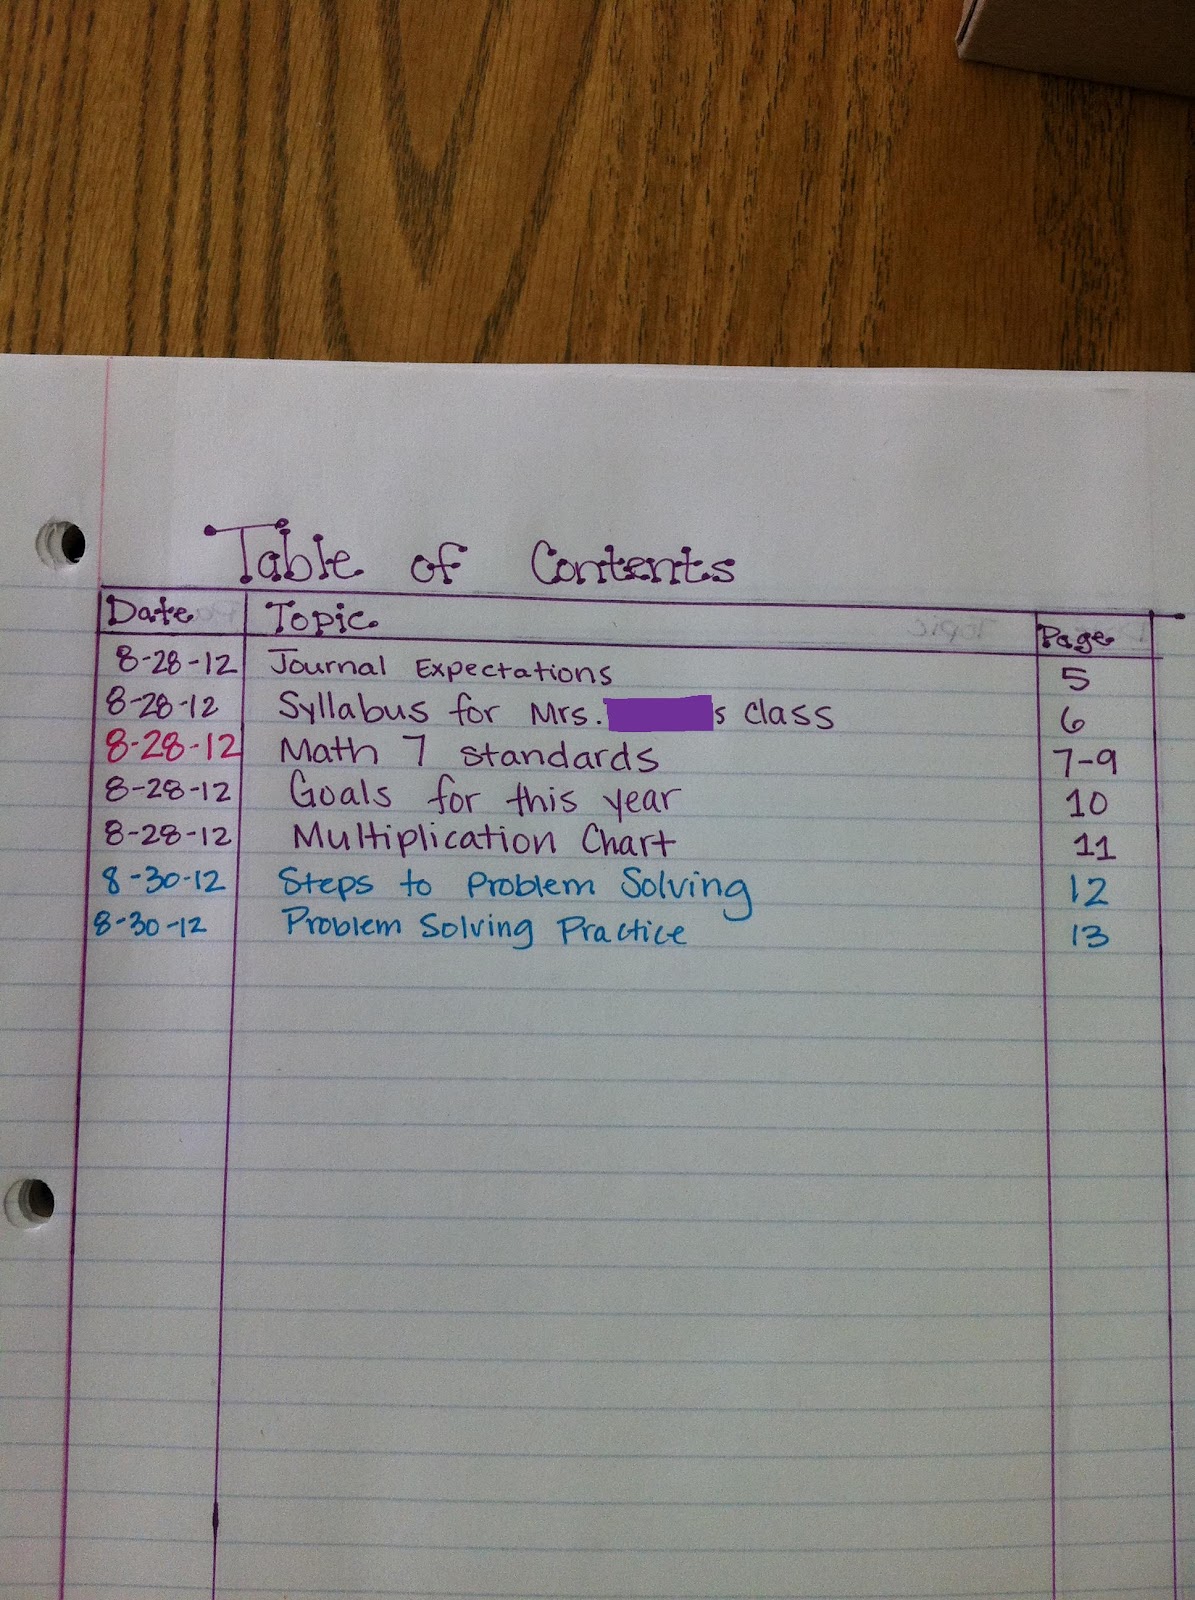 Table of Contents
Date Topic Page
8-28-12 Journal Expectations 5
8-28-12 Syllabus for Mrs. s class 6
8-28-12 Math 7 standards 7-9
8-28-12 Goals for this year 10
8-28-12 Multiplication Chart 11
8-30-12 Steps to Problem Solving 12
8-30-12 Problem Solving Practice 13